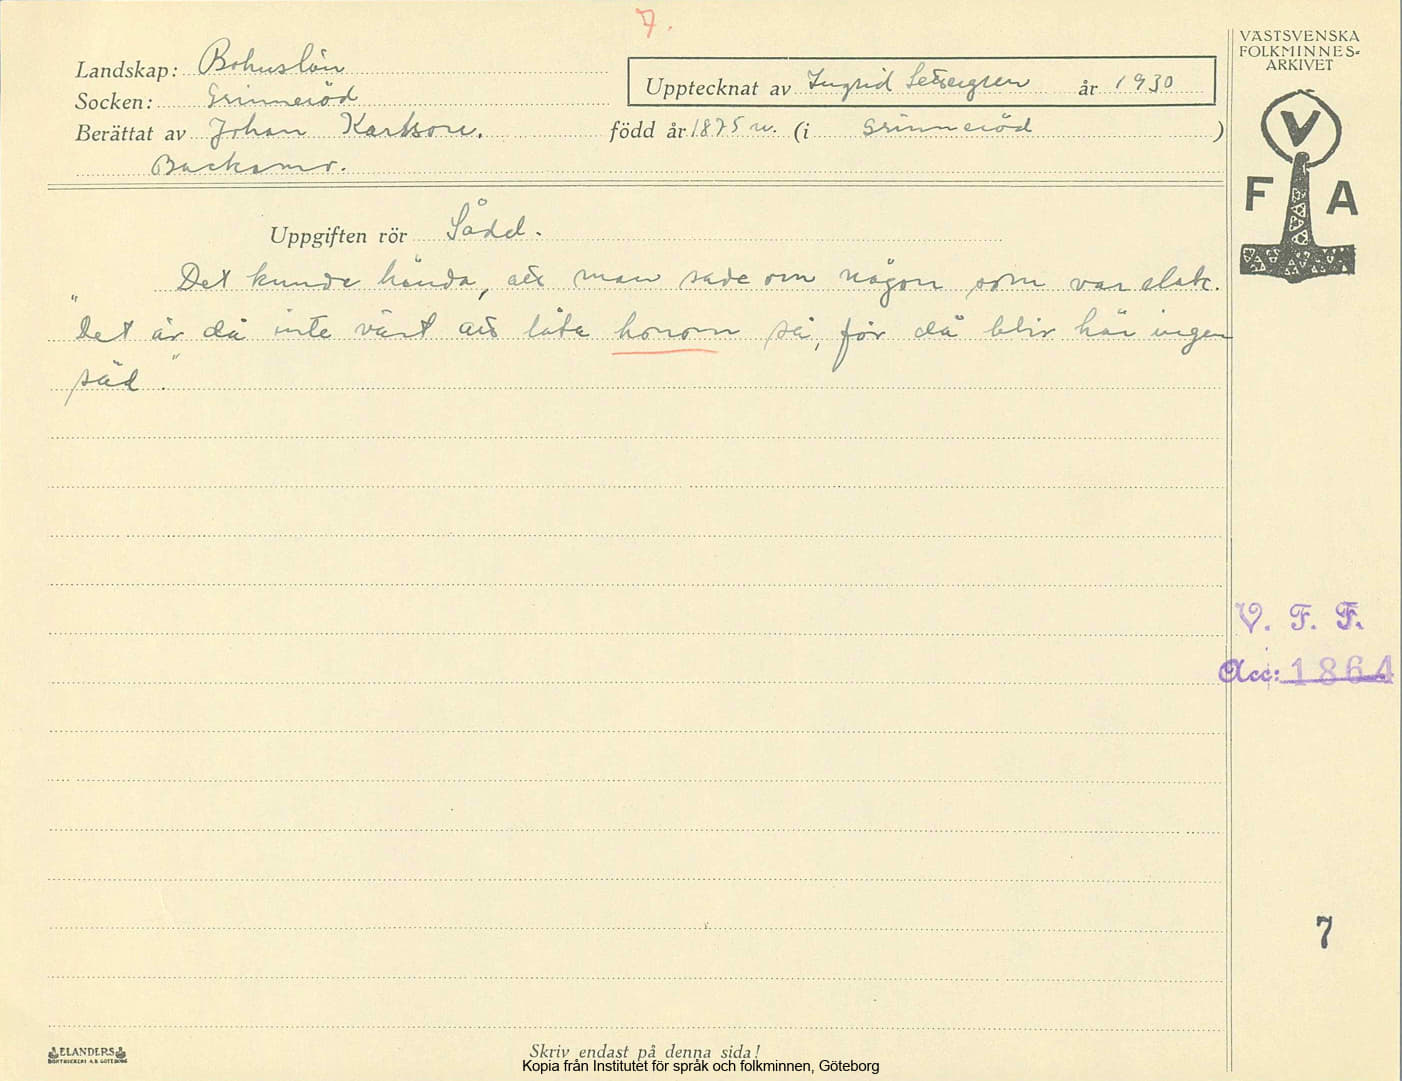 7.
VÄSTSVENSKA
FOLKMINNES-
ARKIVET
Landskap: Bohuslän
Upptecknat av Ingrid år 1930
Socken: Grinneröd
Berättat av Johan Karlsson. född år 1875 (i Grinneröd)
Backamo.
V
F A
Uppgiften rör Sådd.
Det kunde hända, att man sade om någon som var slak.
"Det är då inte värt att låta honom så, för då blir här ingen
säd."
V. F. F.
Acc: 1864
7
ELANDERS
BOKTRYCKERI A.B. GÖTEBORG
Skriv endast på denna sida!
Kopia från Institutet för språk och folkminnen, Göteborg